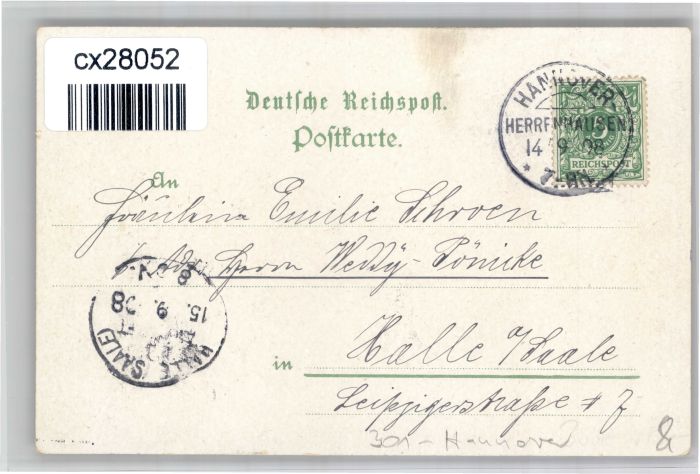 cx28052
Deutsche Reichspost.
Postkarte.
HANNOVER-
HERRENHAUSEN
14 9 98
* 7-8N.
5
REICHSPOST
An
Fräulein Emilie Schroen
Adr. Herrn Weddy-Pönicke
8-9V.
15. 9. 98
HALLE (SAALE)
in Halle a/Saale
Leipzigerstraße # 7
301-Hannover
&